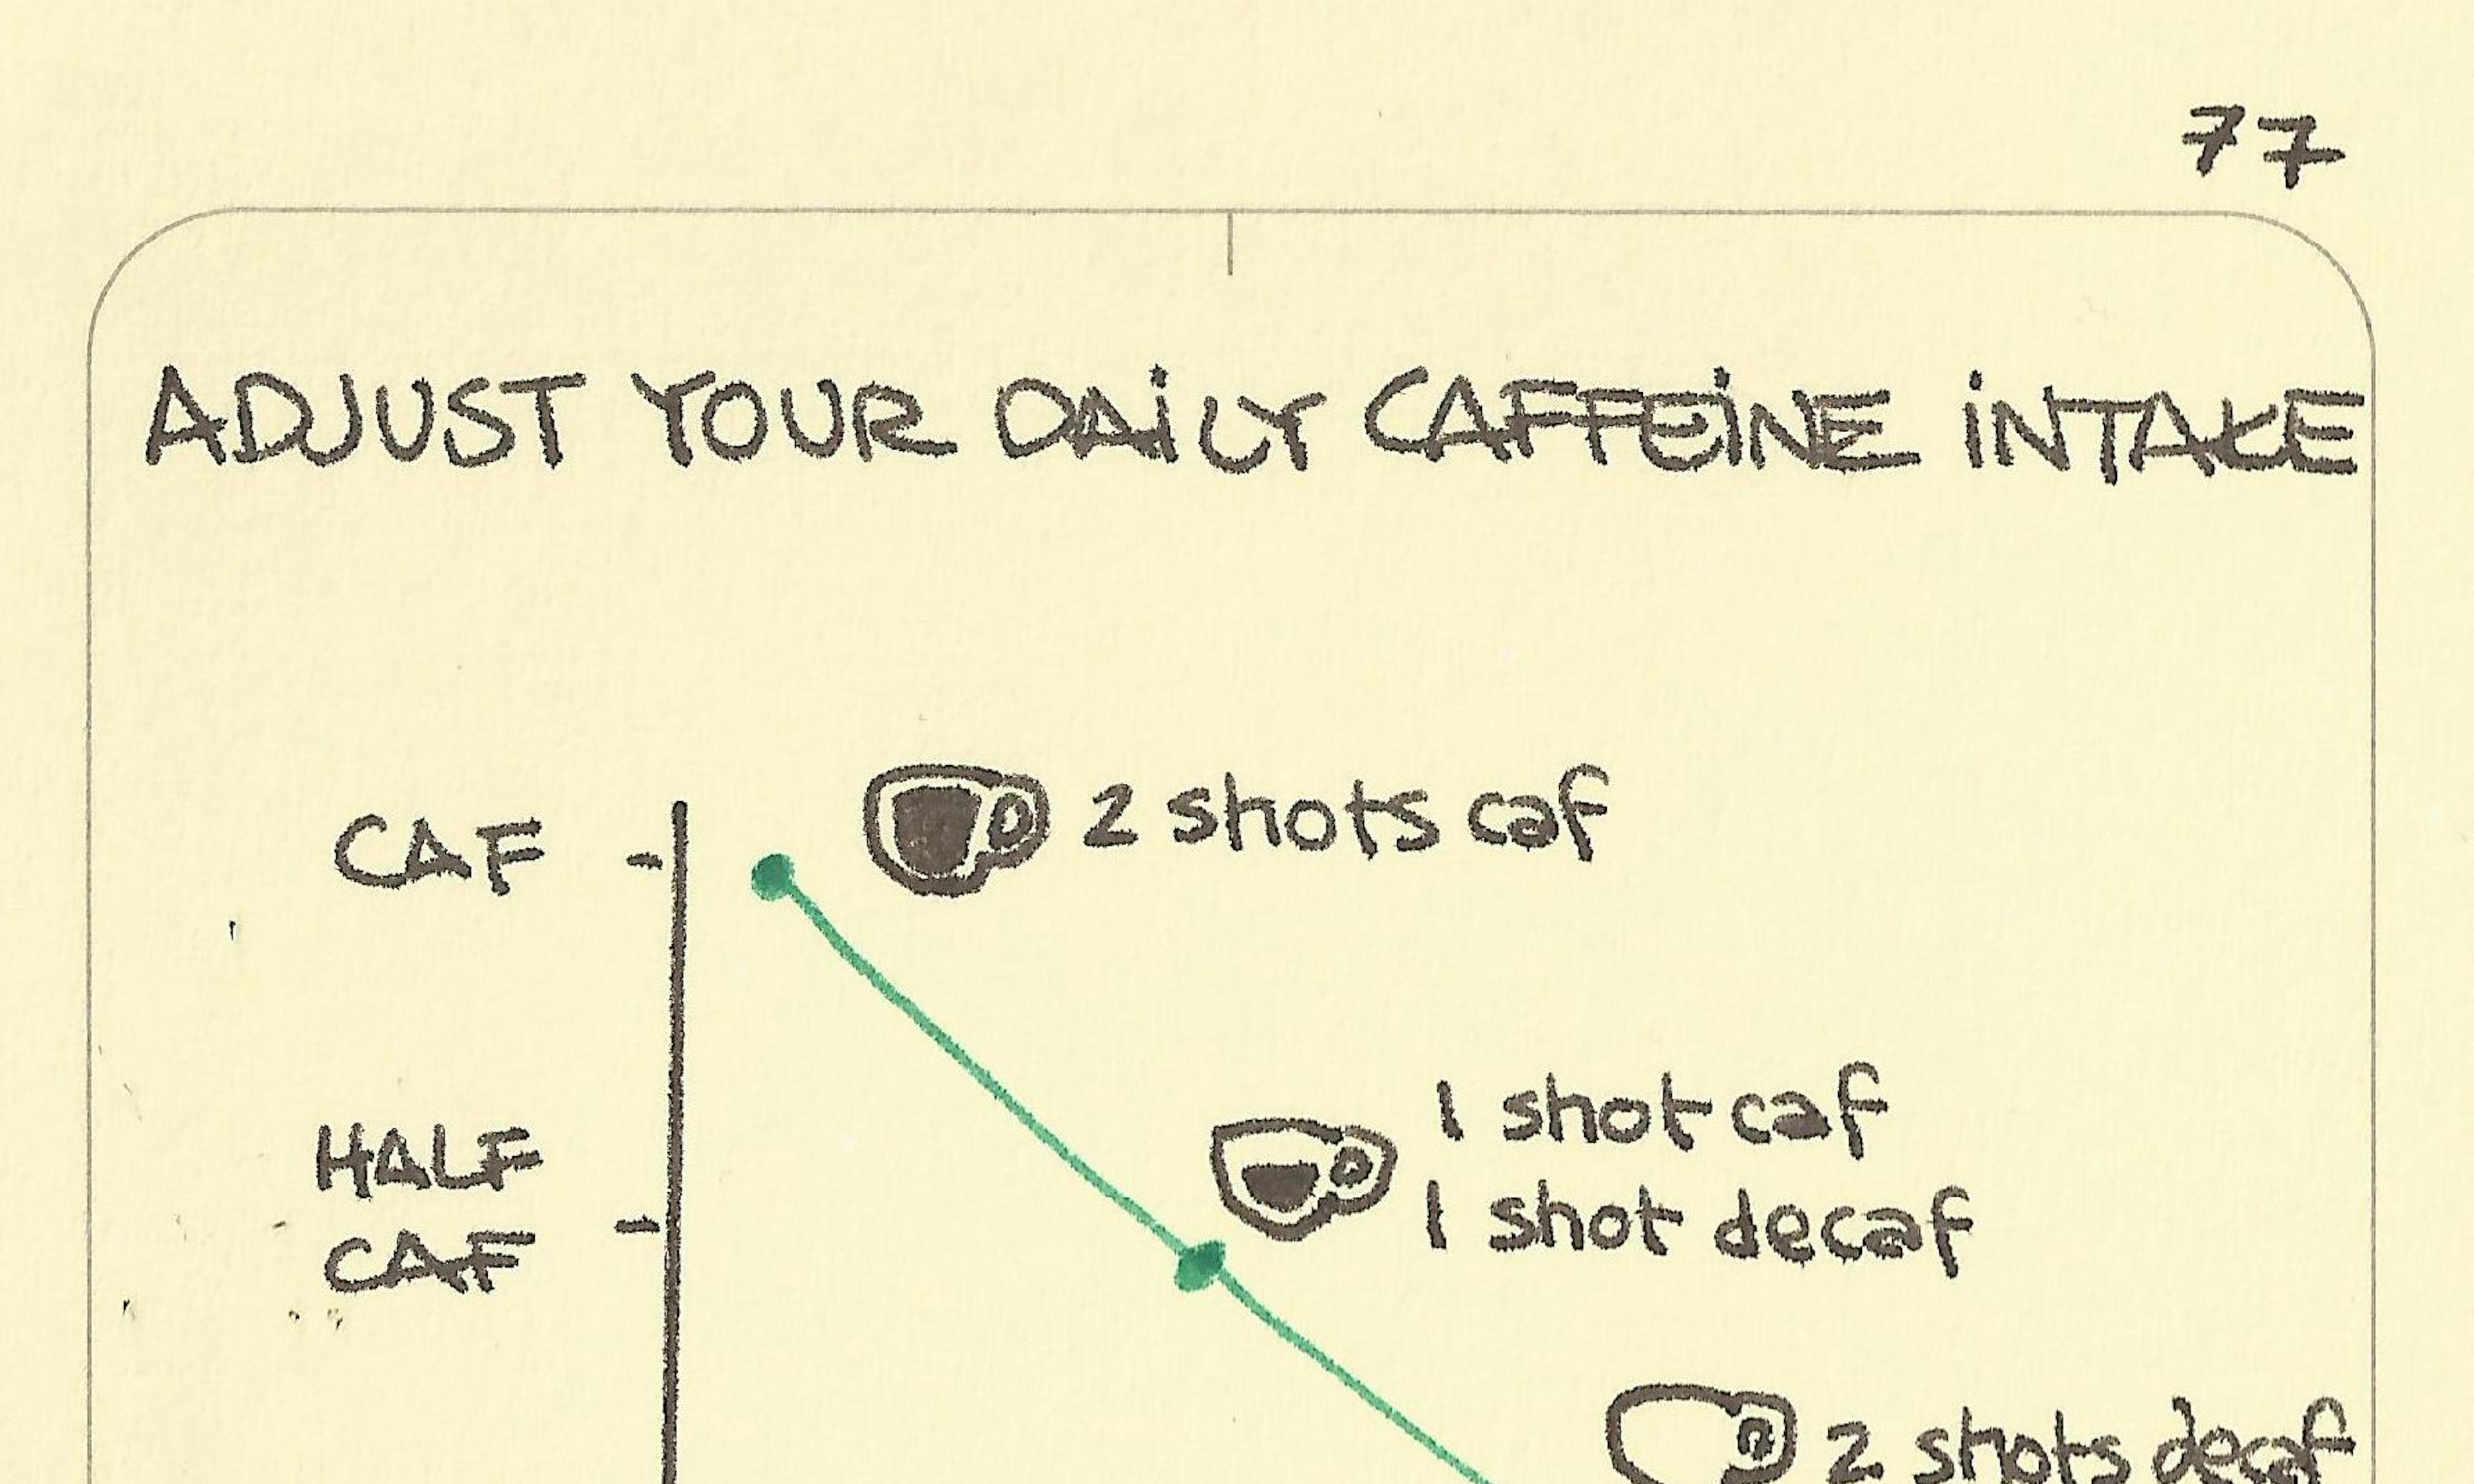 77
ADJUST YOUR DAiLY CAFFEiNE iNTAKE
CAF
2 shots caf
HALF
CAF
1 shot caf
1 shot decaf
2 shots decaf